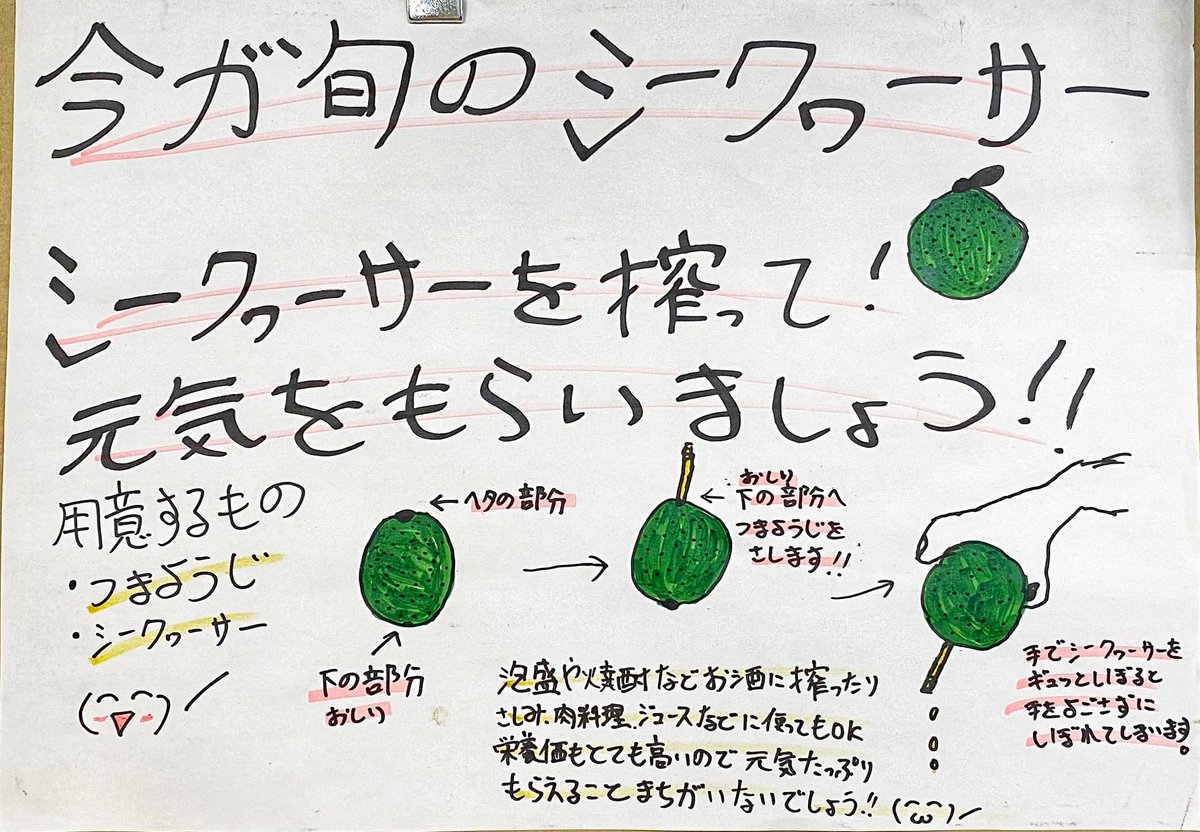 今が旬のシークヮーサー
シークヮーサーを搾って!
元気をもらいましょう!!
用意するもの
・つまようじ
・シークヮーサー
←ヘタの部分
下の部分
おしり
おしり
←下の部分へ
つまようじを
さします!!
手でシークヮーサーを
ギュッとしぼると
手をよごさずに
しぼれてしまいます。
泡盛や焼酎などお酒に搾ったり
さしみ、肉料理、ジュースなどに使ってもOK
栄養価もとても高いので元気たっぷり
もらえることまちがいないでしょう!!